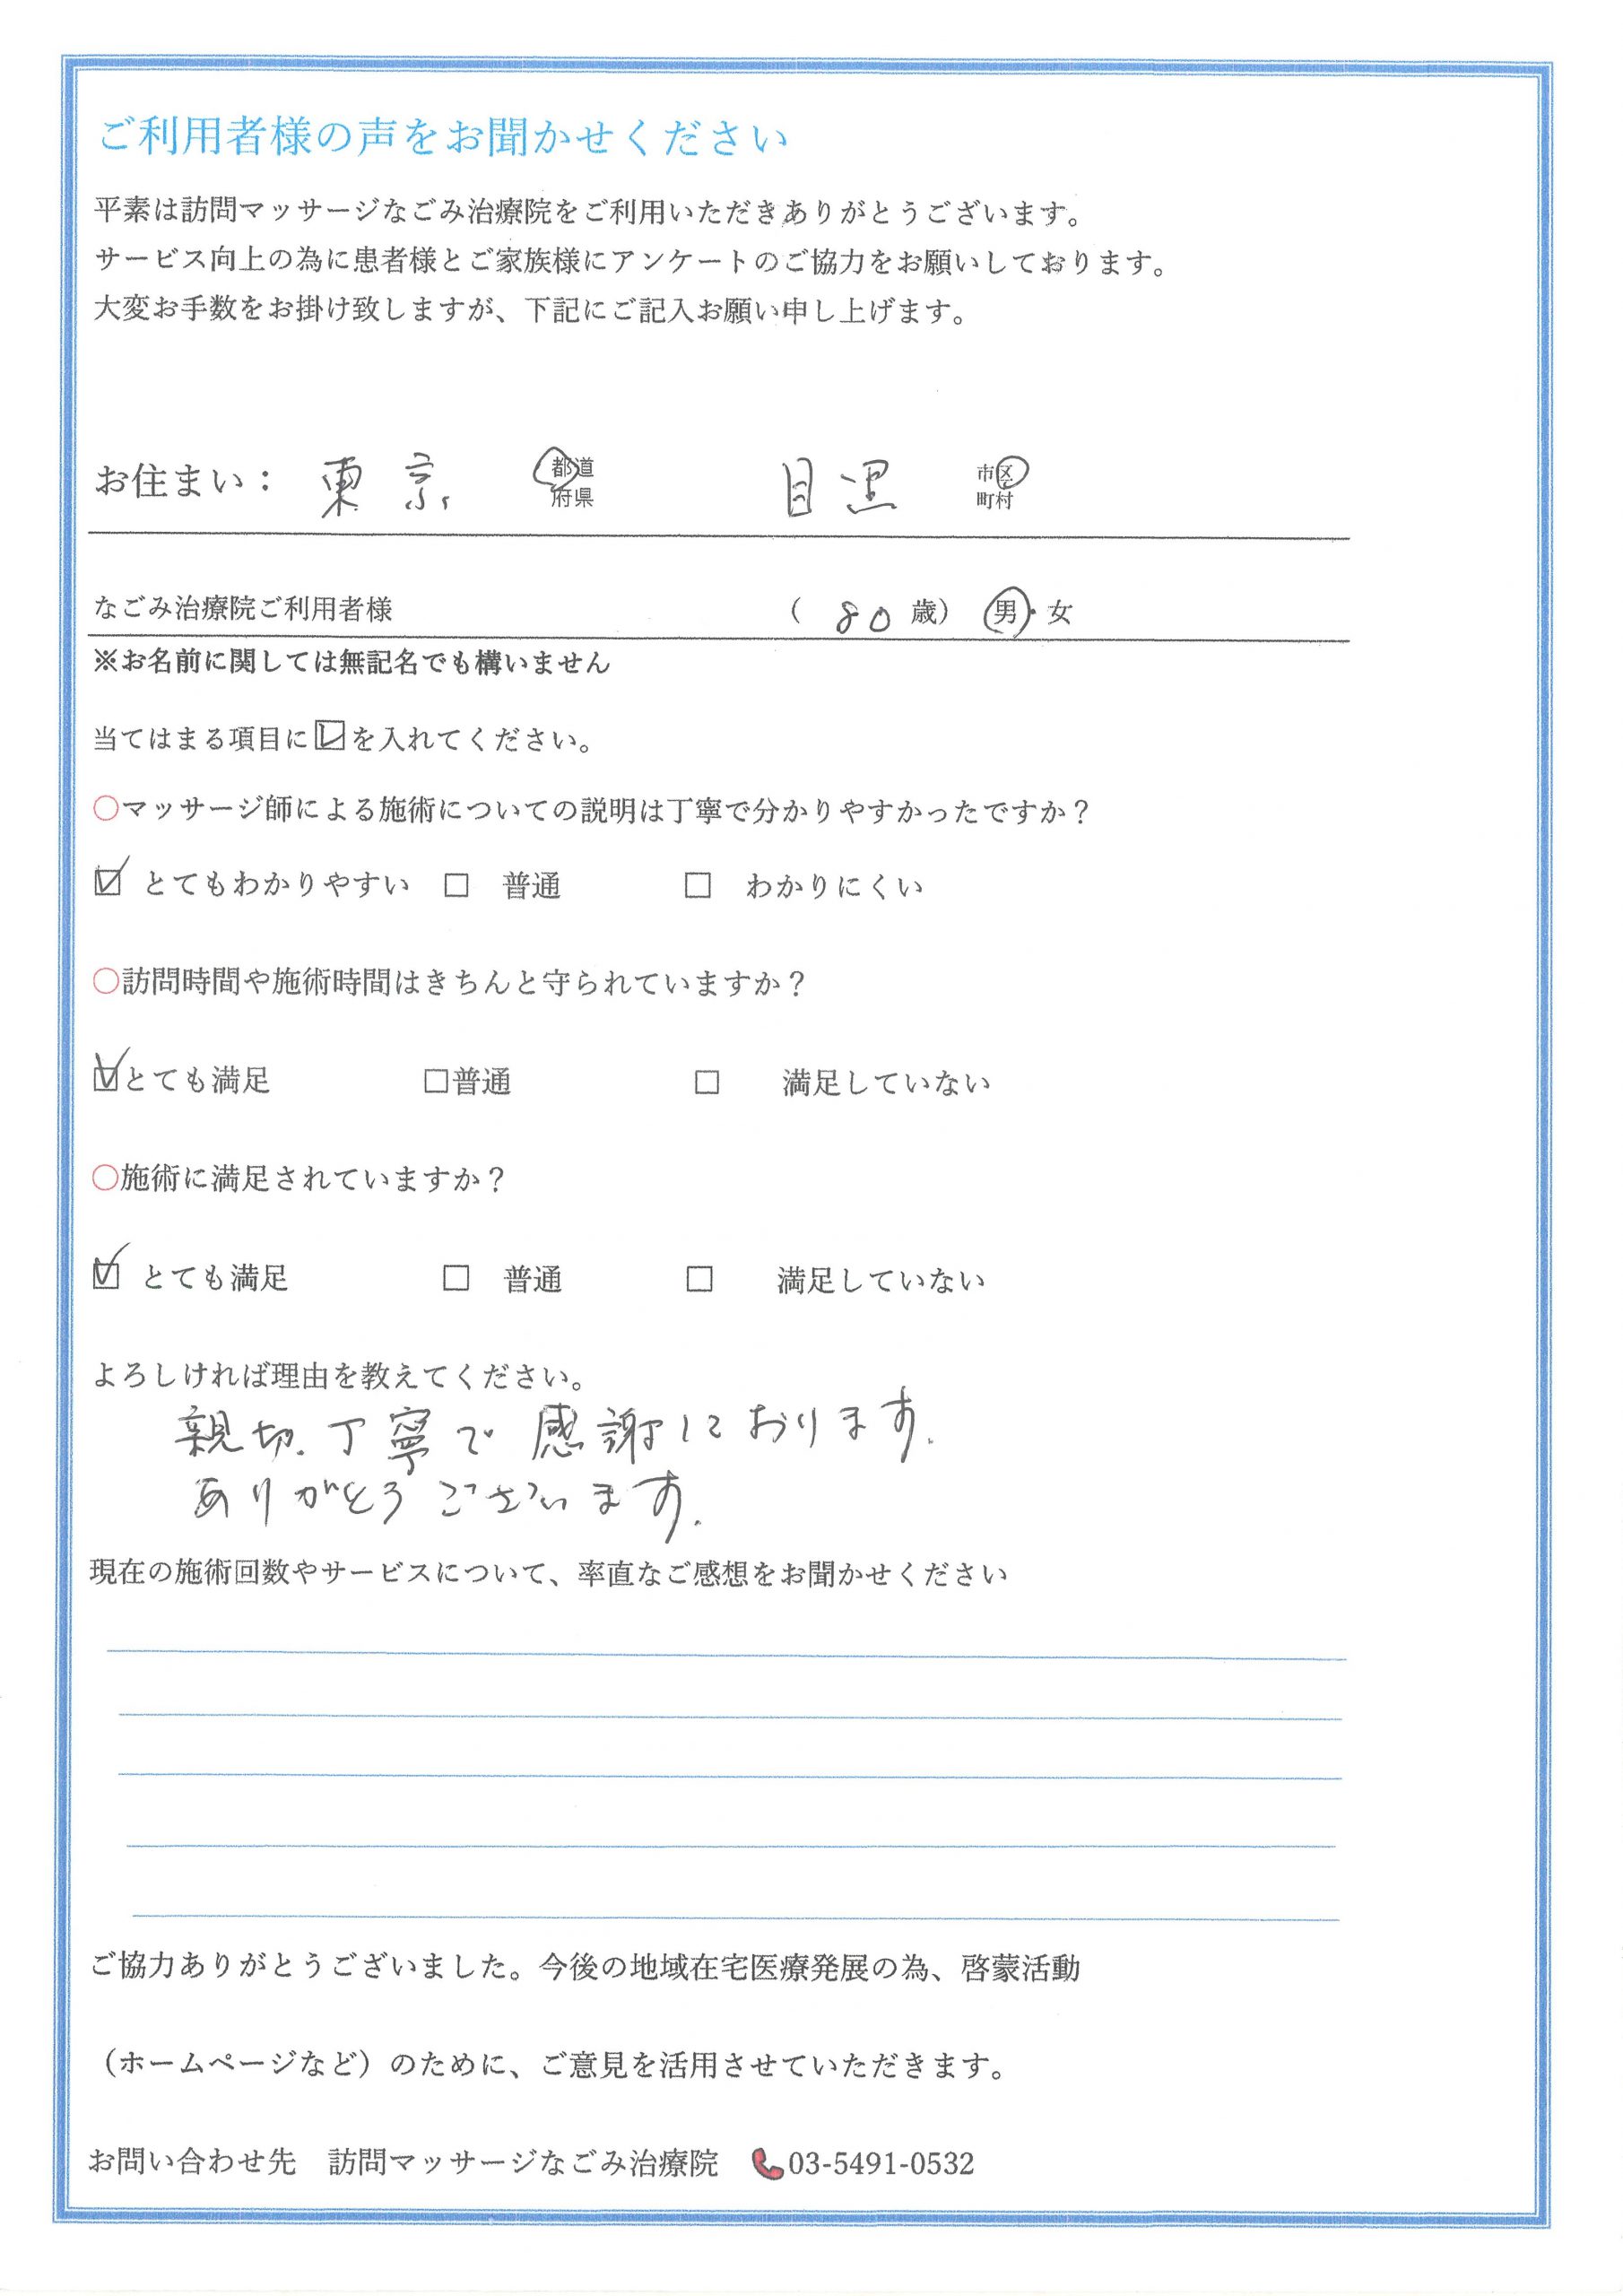 ご利用者様の声をお聞かせください
平素は訪問マッサージなごみ治療院をご利用いただきありがとうございます。
サービス向上の為に患者様とご家族様にアンケートのご協力をお願いしております。
大変お手数をお掛け致しますが、下記にご記入お願い申し上げます。
お住まい： 東京 都道府県 目黒 市区町村
なごみ治療院ご利用者様 （ 80 歳） 男・女
※お名前に関しては無記名でも構いません
当てはまる項目に☑を入れてください。
○マッサージ師による施術についての説明は丁寧で分かりやすかったですか？
☑ とてもわかりやすい □ 普通 □ わかりにくい
○訪問時間や施術時間はきちんと守られていますか？
☑とても満足 □普通 □ 満足していない
○施術に満足されていますか？
☑ とても満足 □ 普通 □ 満足していない
よろしければ理由を教えてください。
親切.丁寧で感謝しております.
ありがとうございます.
現在の施術回数やサービスについて、率直なご感想をお聞かせください
ご協力ありがとうございました。今後の地域在宅医療発展の為、啓蒙活動
（ホームページなど）のために、ご意見を活用させていただきます。
お問い合わせ先　訪問マッサージなごみ治療院　03-5491-0532